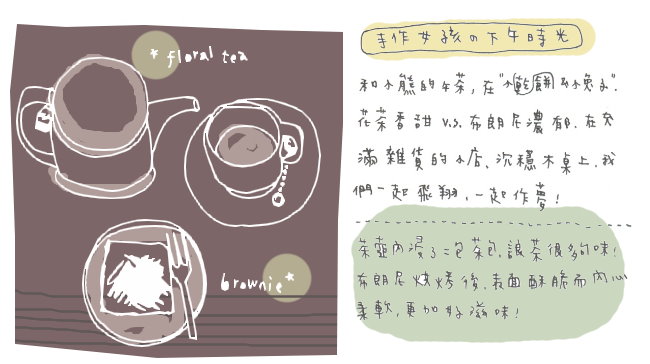 * floral tea
brownie *
手作女孩の下午時光
和小熊的午茶,在"小乾餅&小兔子".
花茶香甜 v.s. 布朗尼濃郁.在充
滿雜貨的小店,沉穩木桌上,我
們一起飛翔,一起作夢!
茶壺內浸了二包茶包,讓茶很多的味!
布朗尼燒烤後,表面酥脆而內心
柔軟,更加好滋味!